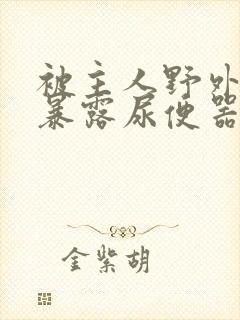 被主人野外
暴露尿便器
金紫胡